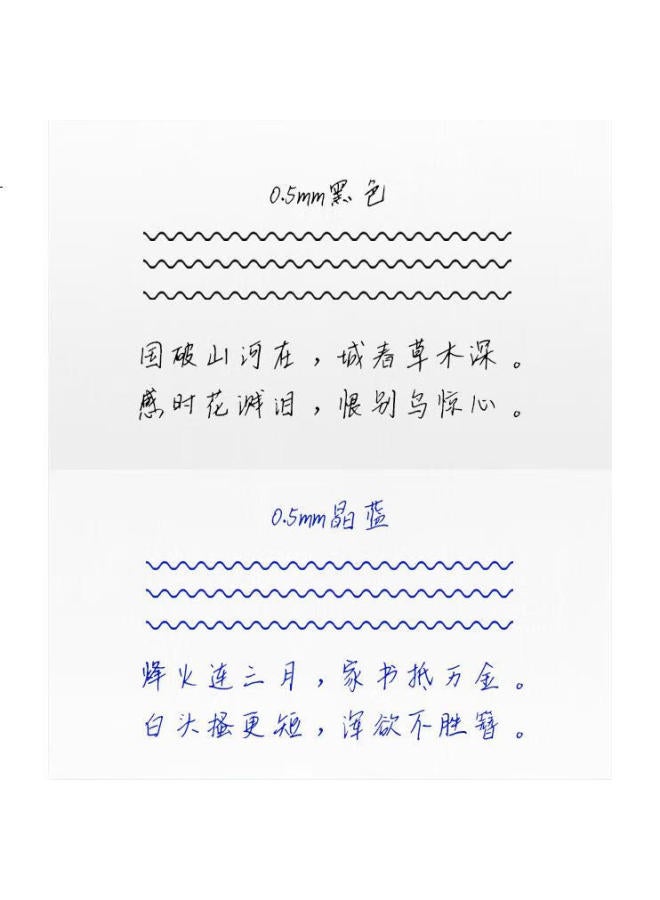 0.5mm黑色
国破山河在，城春草木深。
感时花溅泪，恨别鸟惊心。
0.5mm晶蓝
烽火连三月，家书抵万金。
白头搔更短，浑欲不胜簪。